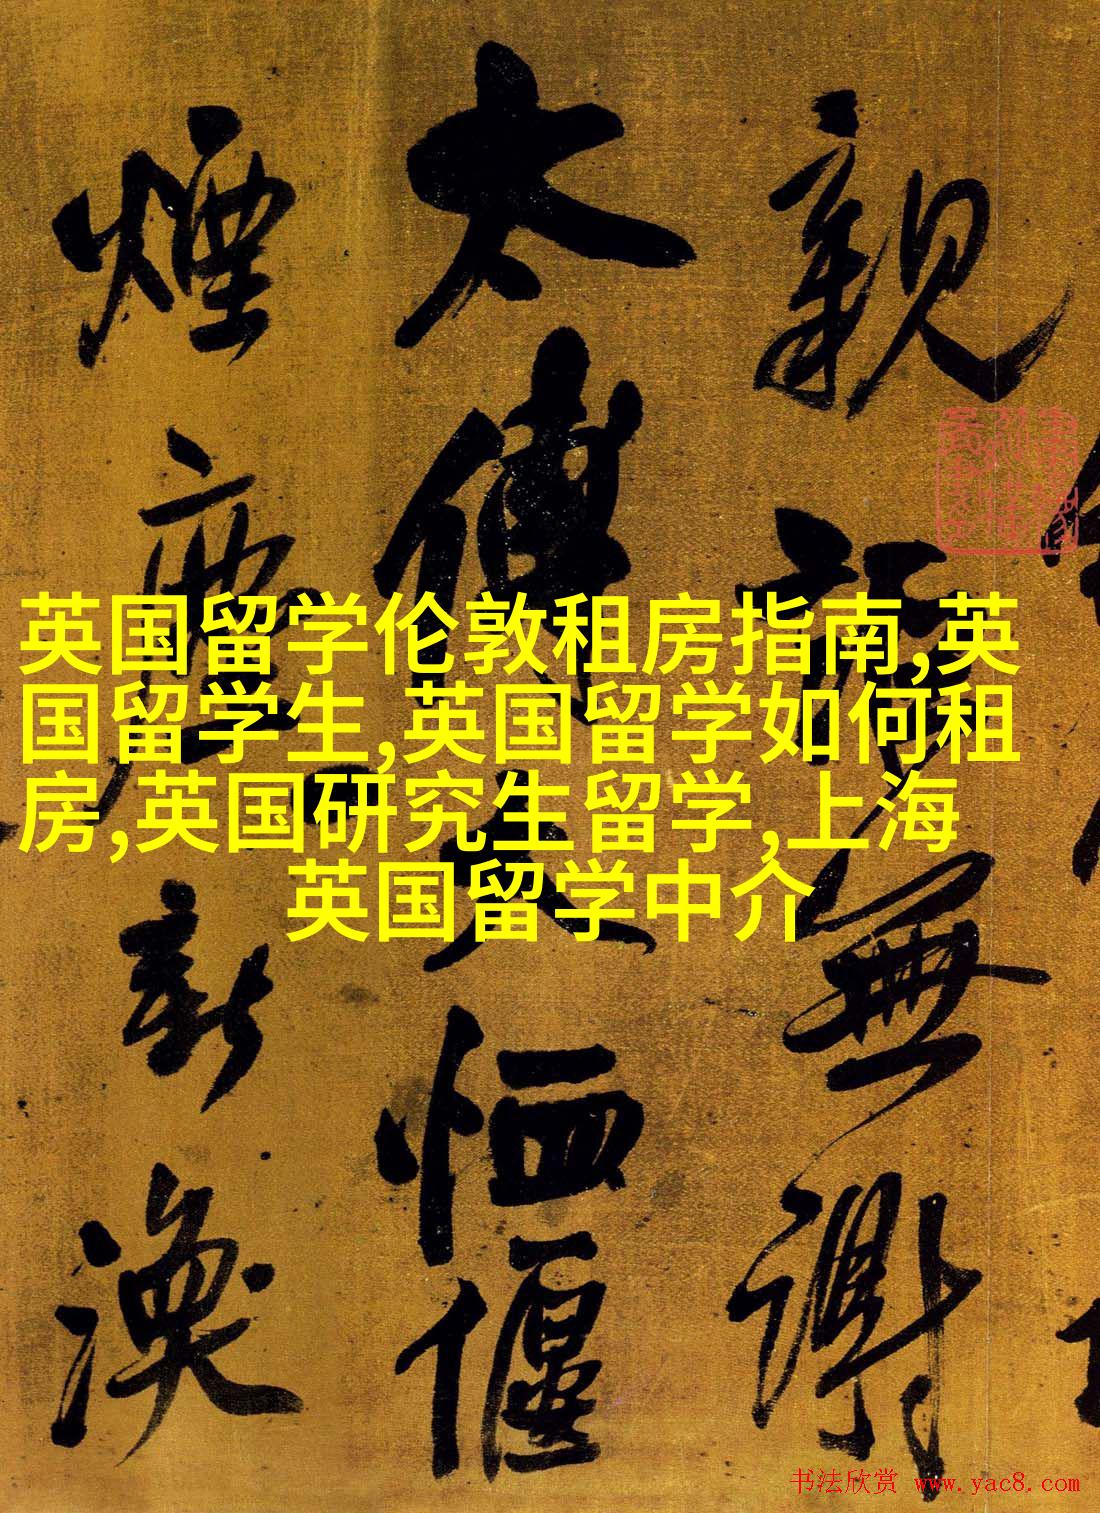 親無謝
太傅恤偃
煙新渙
英国留学伦敦租房指南,英
国留学生,英国留学如何租
房,英国研究生留学,上海
英国留学中介
书法欣赏 www.yac8.com